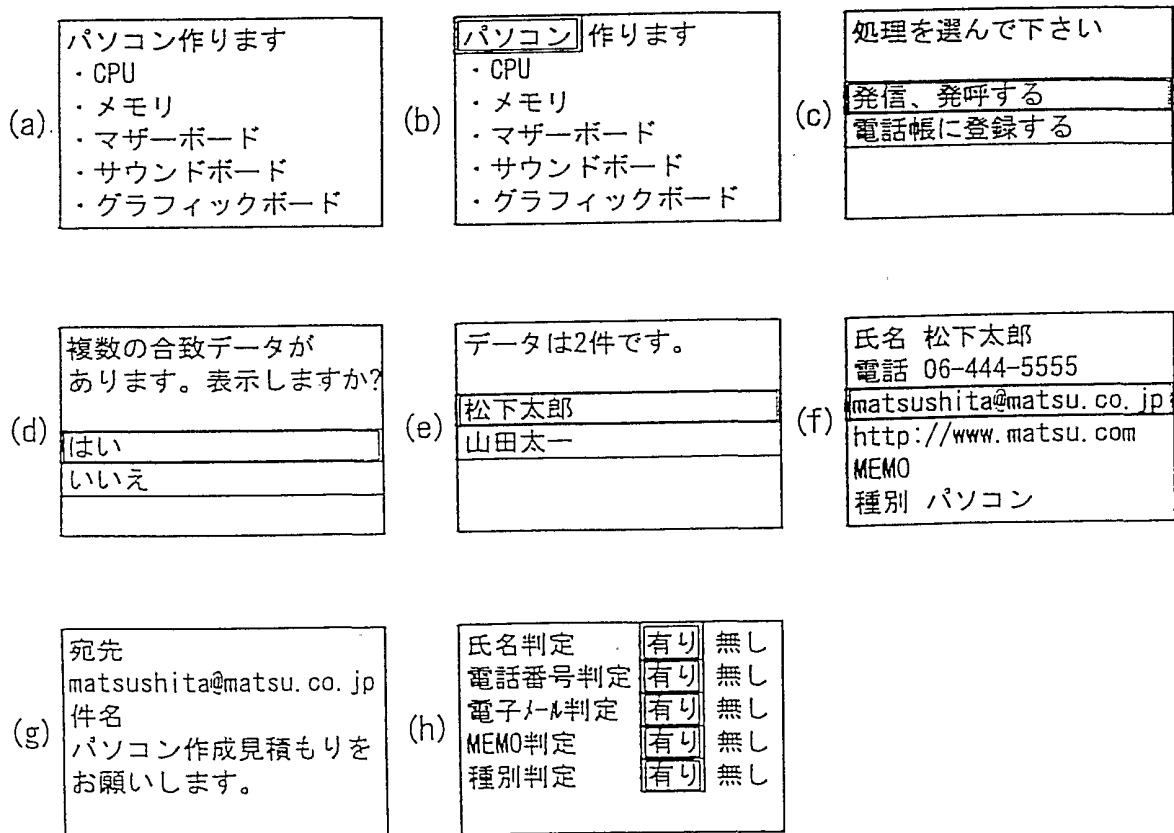 (a)
パソコン作ります
・CPU
・メモリ
・マザーボード
・サウンドボード
・グラフィックボード
(b)
パソコン 作ります
・CPU
・メモリ
・マザーボード
・サウンドボード
・グラフィックボード
(c)
処理を選んで下さい
発信、発呼する
電話帳に登録する
(d)
複数の合致データが
あります。表示しますか?
はい
いいえ
(e)
データは2件です。
松下太郎
山田太一
(f)
氏名 松下太郎
電話 06-444-5555
matsushita@matsu.co.jp
http://www.matsu.com
MEMO
種別 パソコン
(g)
宛先
matsushita@matsu.co.jp
件名
パソコン作成見積もりを
お願いします。
(h)
氏名判定 有り 無し
電話番号判定 有り 無し
電子メール判定 有り 無し
MEMO判定 有り 無し
種別判定 有り 無し